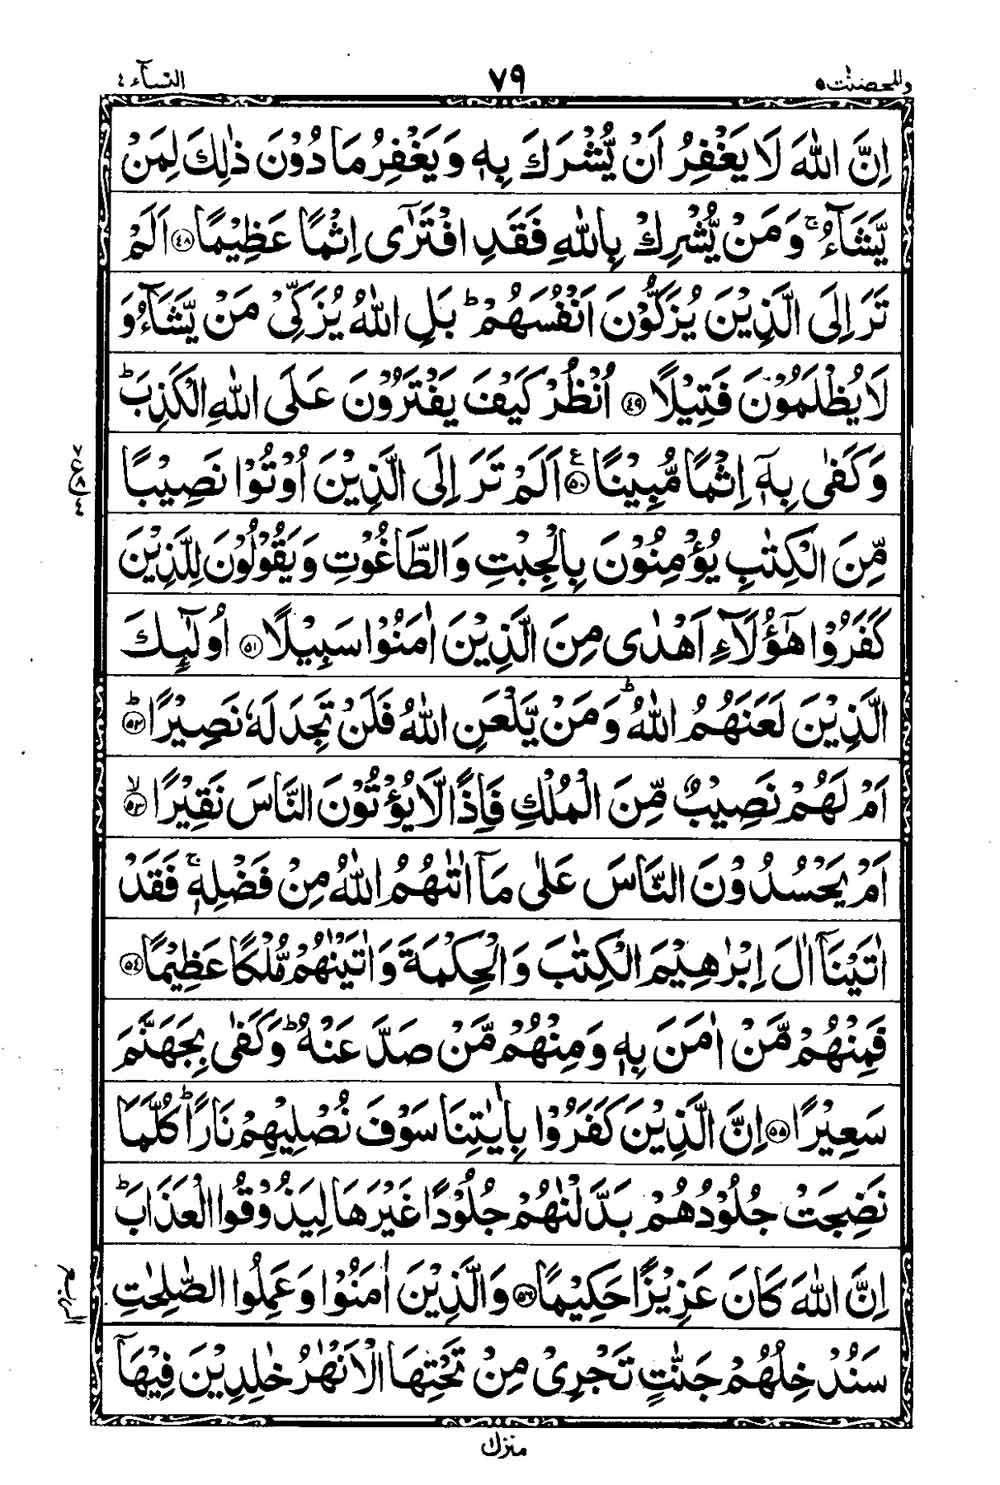 والمحصنت ٥ ٧٩ النسآء ٤
اِنَّ اللّٰهَ لَا يَغْفِرُ اَنْ يُّشْرَكَ بِهٖ وَيَغْفِرُ مَا دُوْنَ ذٰلِكَ لِمَنْ
يَّشَآءُ ۚ وَمَنْ يُّشْرِكْ بِاللّٰهِ فَقَدِ افْتَرٰٓى اِثْمًا عَظِيْمًا ﴿٤٨﴾ اَلَمْ
تَرَ اِلَى الَّذِيْنَ يُزَكُّوْنَ اَنْفُسَهُمْ ؕ بَلِ اللّٰهُ يُزَكِّىْ مَنْ يَّشَآءُ وَ
لَا يُظْلَمُوْنَ فَتِيْلًا ﴿٤٩﴾ اُنْظُرْ كَيْفَ يَفْتَرُوْنَ عَلَى اللّٰهِ الْكَذِبَ ؕ
وَكَفٰى بِهٖٓ اِثْمًا مُّبِيْنًا ﴿٥٠﴾ ع اَلَمْ تَرَ اِلَى الَّذِيْنَ اُوْتُوْا نَصِيْبًا
مِّنَ الْكِتٰبِ يُؤْمِنُوْنَ بِالْجِبْتِ وَالطَّاغُوْتِ وَيَقُوْلُوْنَ لِلَّذِيْنَ
كَفَرُوْا هٰٓؤُلَآءِ اَهْدٰى مِنَ الَّذِيْنَ اٰمَنُوْا سَبِيْلًا ﴿٥١﴾ اُولٰٓئِكَ
الَّذِيْنَ لَعَنَهُمُ اللّٰهُ ؕ وَمَنْ يَّلْعَنِ اللّٰهُ فَلَنْ تَجِدَ لَهٗ نَصِيْرًا ﴿٥٢﴾ ؕ
اَمْ لَهُمْ نَصِيْبٌ مِّنَ الْمُلْكِ فَاِذًا لَّا يُؤْتُوْنَ النَّاسَ نَقِيْرًا ﴿٥٣﴾ ۙ
اَمْ يَحْسُدُوْنَ النَّاسَ عَلٰى مَآ اٰتٰىهُمُ اللّٰهُ مِنْ فَضْلِهٖ ۚ فَقَدْ
اٰتَيْنَآ اٰلَ اِبْرٰهِيْمَ الْكِتٰبَ وَالْحِكْمَةَ وَاٰتَيْنٰهُمْ مُّلْكًا عَظِيْمًا ﴿٥٤﴾
فَمِنْهُمْ مَّنْ اٰمَنَ بِهٖ وَمِنْهُمْ مَّنْ صَدَّ عَنْهُ ؕ وَكَفٰى بِجَهَنَّمَ
سَعِيْرًا ﴿٥٥﴾ اِنَّ الَّذِيْنَ كَفَرُوْا بِاٰيٰتِنَا سَوْفَ نُصْلِيْهِمْ نَارًا ؕ كُلَّمَا
نَضِجَتْ جُلُوْدُهُمْ بَدَّلْنٰهُمْ جُلُوْدًا غَيْرَهَا لِيَذُوْقُوا الْعَذَابَ ؕ
اِنَّ اللّٰهَ كَانَ عَزِيْزًا حَكِيْمًا ﴿٥٦﴾ وَالَّذِيْنَ اٰمَنُوْا وَعَمِلُوا الصّٰلِحٰتِ
الربع
سَنُدْخِلُهُمْ جَنّٰتٍ تَجْرِىْ مِنْ تَحْتِهَا الْاَنْهٰرُ خٰلِدِيْنَ فِيْهَآ
منزل